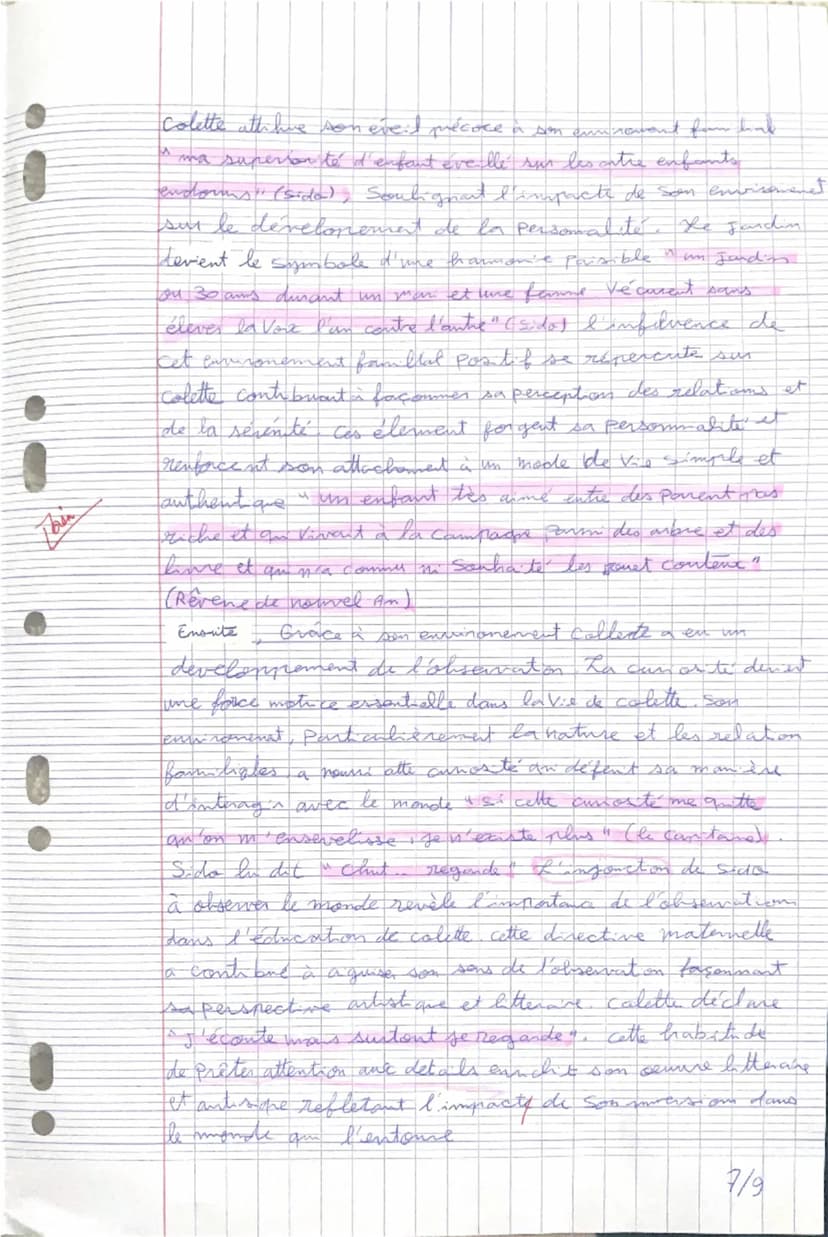 Colette attribue son éveil précoce à son environnement familial
" ma superiorité d'enfant éveillé sur les autre enfants
endormis" (Sido), Soulignant l'impacte de son environement
sur le dévelopement de la personnalité. Le jardin
devient le symbole d'une harmonie paisible " un jardin
ou 30 ans durant un mari et une femme vécurent sans
élever la voix l'un contre l'autre" (Sido) l'influence de
cet environement familial positif se répercute sur
colette contribuant à façonner sa perception des relations et
de la sérénité. Ces élement forgent sa personnalité et
renforcent son attachement à un mode de vie simple et
authentique " un enfant tès aimé entre des parent pas
riche et qui vivait à la campagne parmi des arbre et des
livre et qui n'a connu ni souhaité les jouet
(Rêverie de nouvel An)
Ensuite, Grâce à son environement Collette a eu un
developpement de l'observation. La curiosité devient
une force motrice essentielle dans la vie de colette. Son
environement, particulièrement la nature et les relation
familiales, a nourri cette curiosité qui définit sa manière
d'interagir avec le monde " si cette curiosité me quitte
qu'on m'ensevelisse, je n'existe plus" (le capitane).
Sido lui dit " chut... regarde" L'injonction de Sido
à observer le monde revèle l'importance de l'observation
dans l'éducation de colette. cette directive maternelle
a contribué à aguiser son sens de l'observation façonnant
sa perspective artistique et litteraire. Calette déclare
" J'écoute mais surtout je regarde". Cette habitude
de prêter attention aux détails enrichit son oeuvre litteraire
et artisique refletant l'impacte de son dans
le monde qui l'entoure
7/9